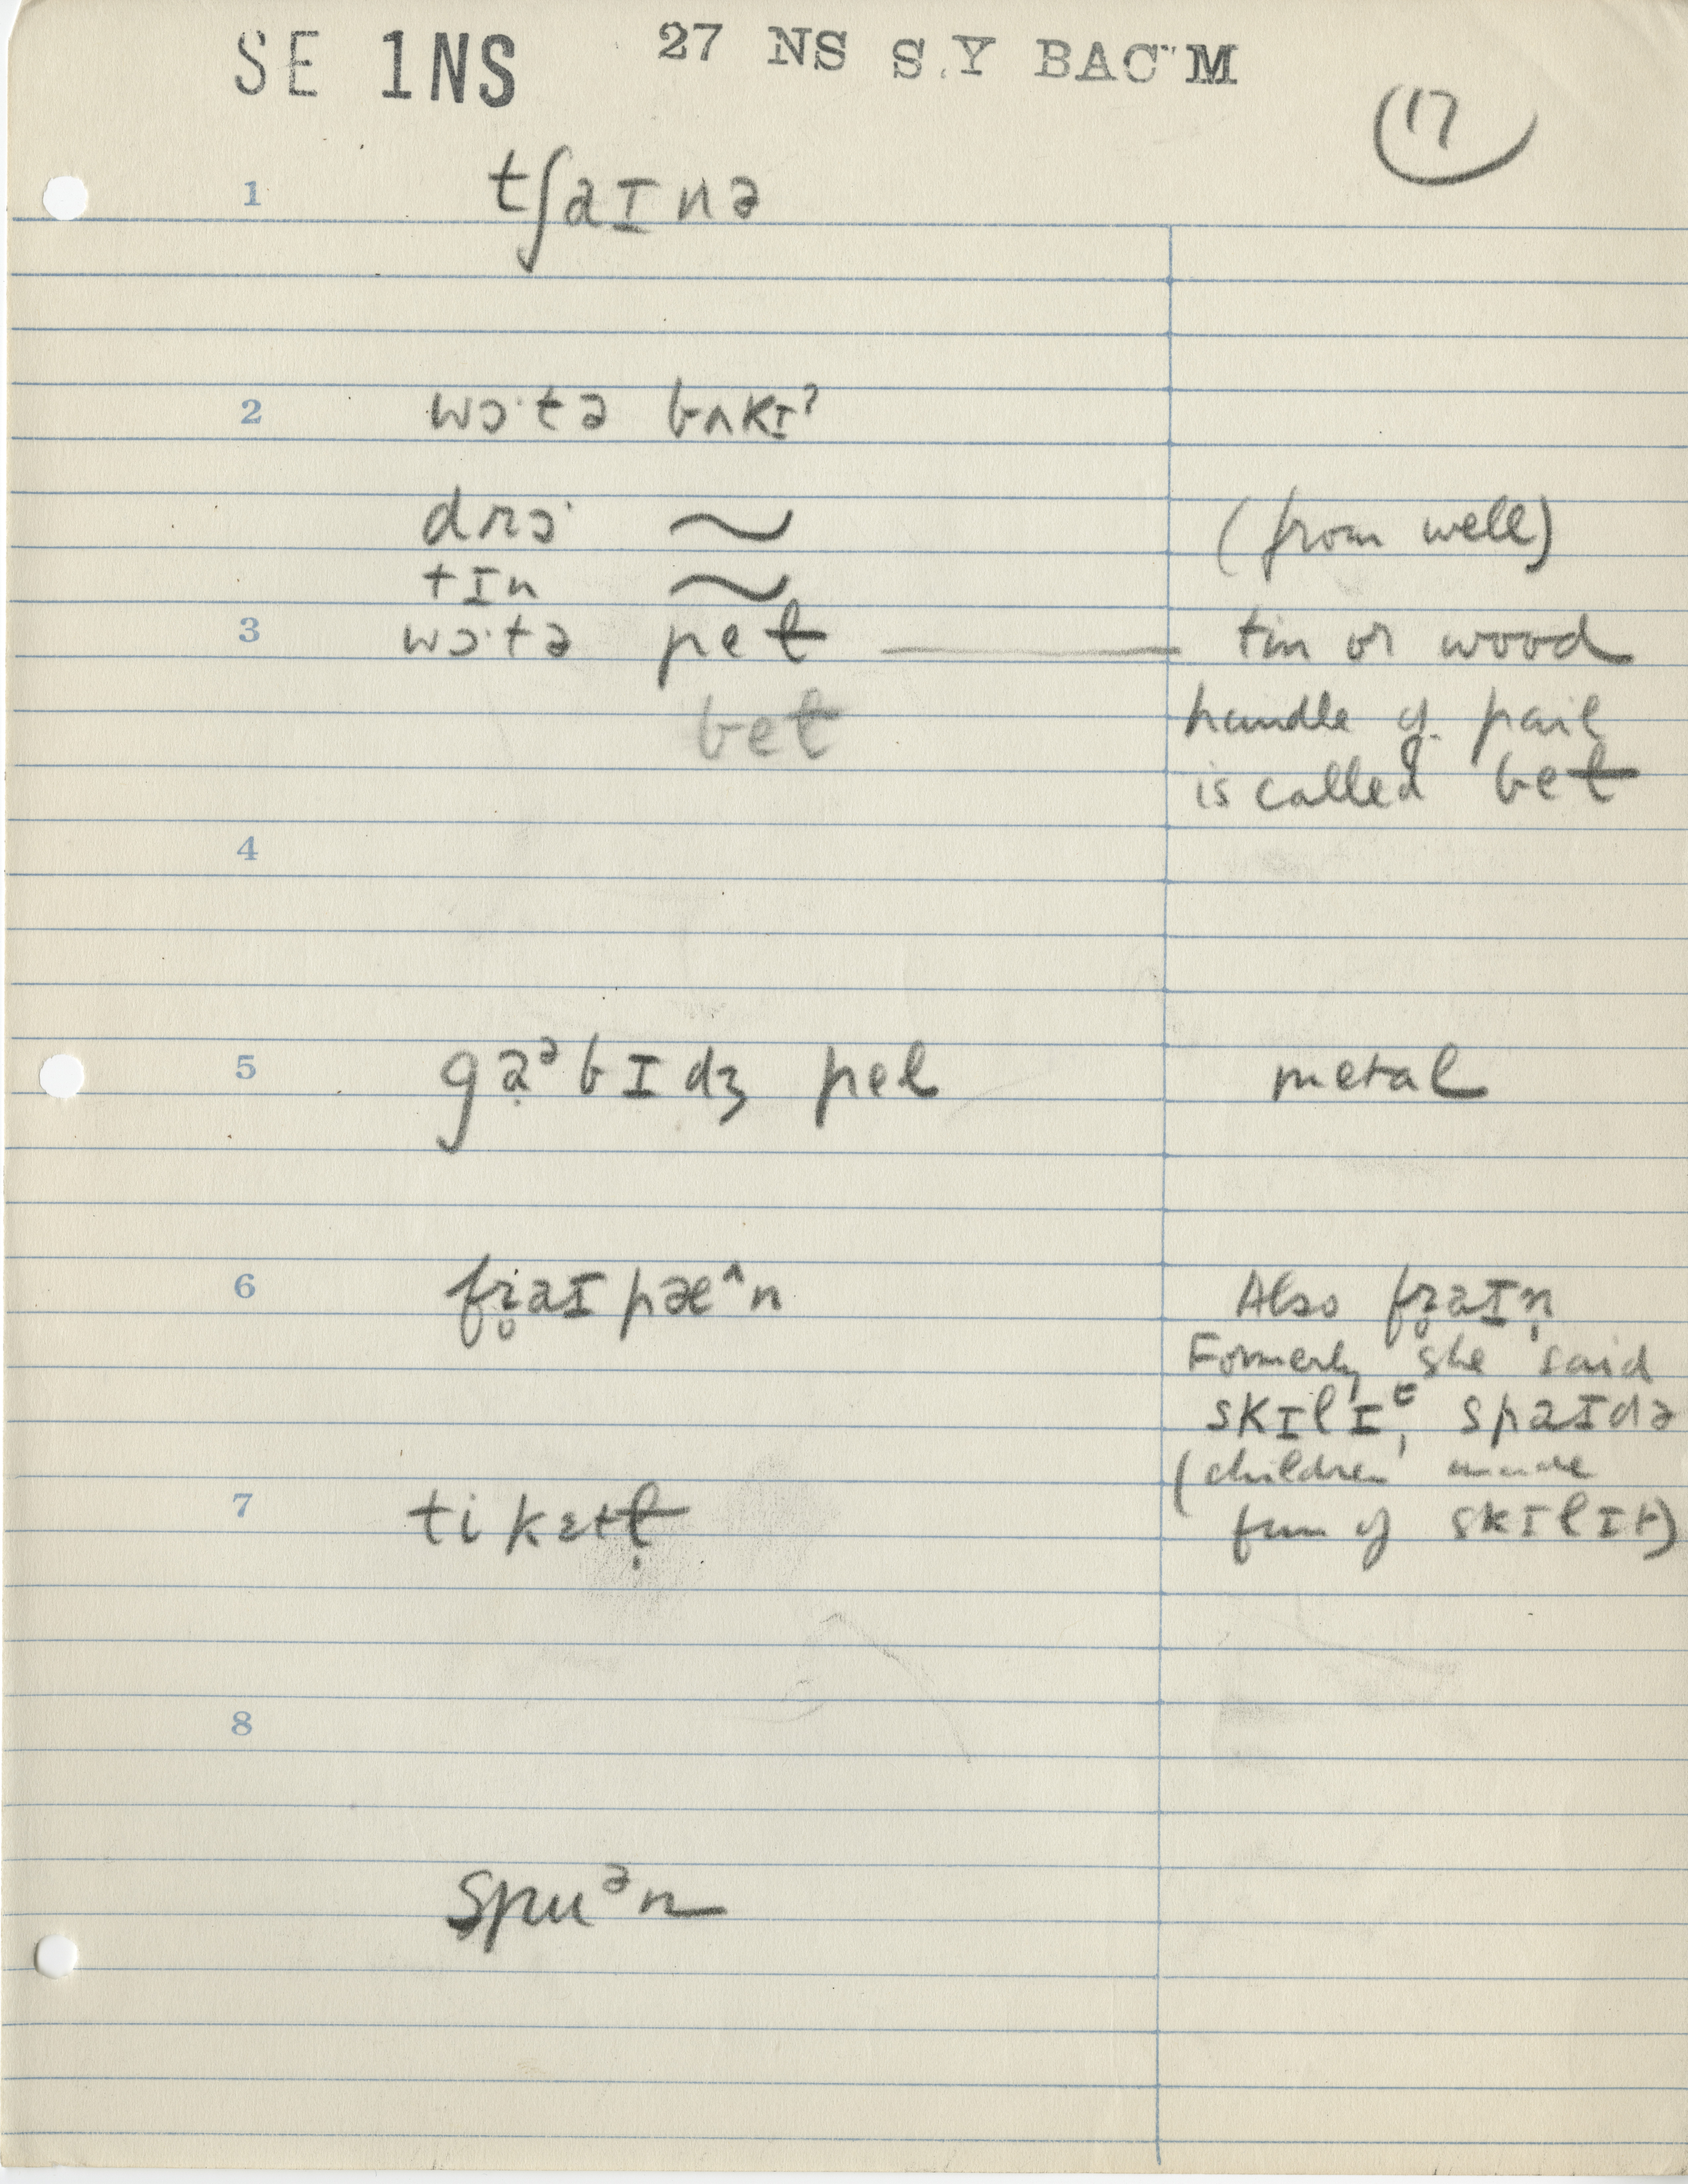 SE 1NS 27 NS S.Y BAC M
17
1 tʃaɪnə
2 wɔ·tə bʌkɪʔ
drɔ· ~ (from well)
tɪn ~
3 wɔ·tə peɫ — tin or wood
beɫ handle of pail
is called beɫ
4
5 gạᵊbɪdʒ pel metal
6 fɹ̥aɪpæ^n Also fɹ̥aɪn̩
Formerly she said
skɪlɪᵗ, spaɪdə
(children made
fun of skɪlɪt)
7 tikɛtɫ̩
8
spuᵊn